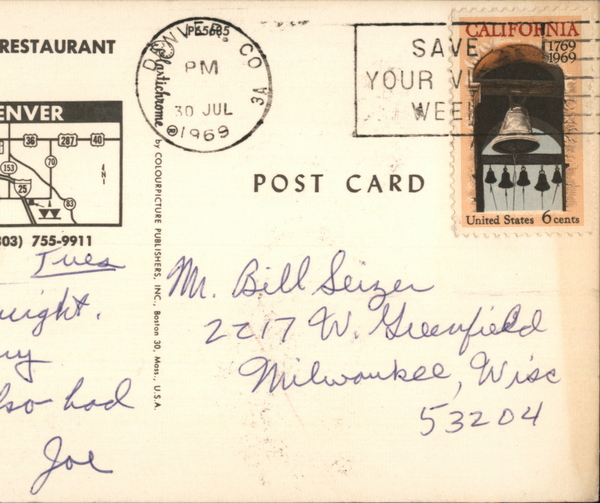 RESTAURANT
ENVER
36 287 40
153
70
25
83
N
03) 755-9911
Tues
night.
ry
lso had
Joe
P65685
Plastichrome
® by COLOURPICTURE PUBLISHERS, INC., Boston 30, Mass., U.S.A.
DENVER, CO
PM
30 JUL
1969
SAVE
YOUR VI
WEE
CALIFORNIA
1769
1969
United States 6 cents
POST CARD
Mr. Bill Seizer
2217 W. Greenfield
Milwaukee, Wisc
53204